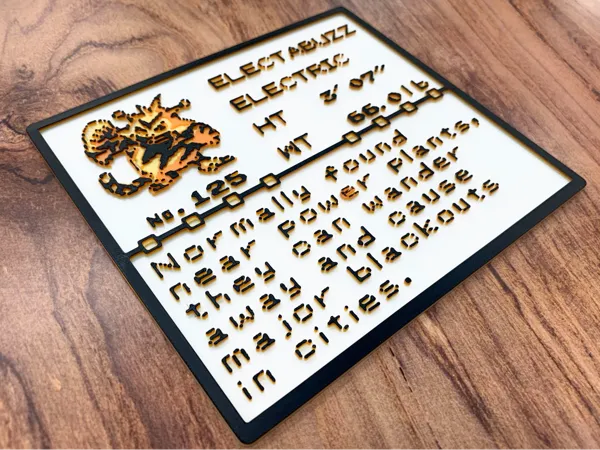 ELECTABUZZ
ELECTRIC
HT 3' 07"
WT 66.0lb
No.125
Normally found
near Power Plants,
they can wander
away and cause
major blackouts
in cities.